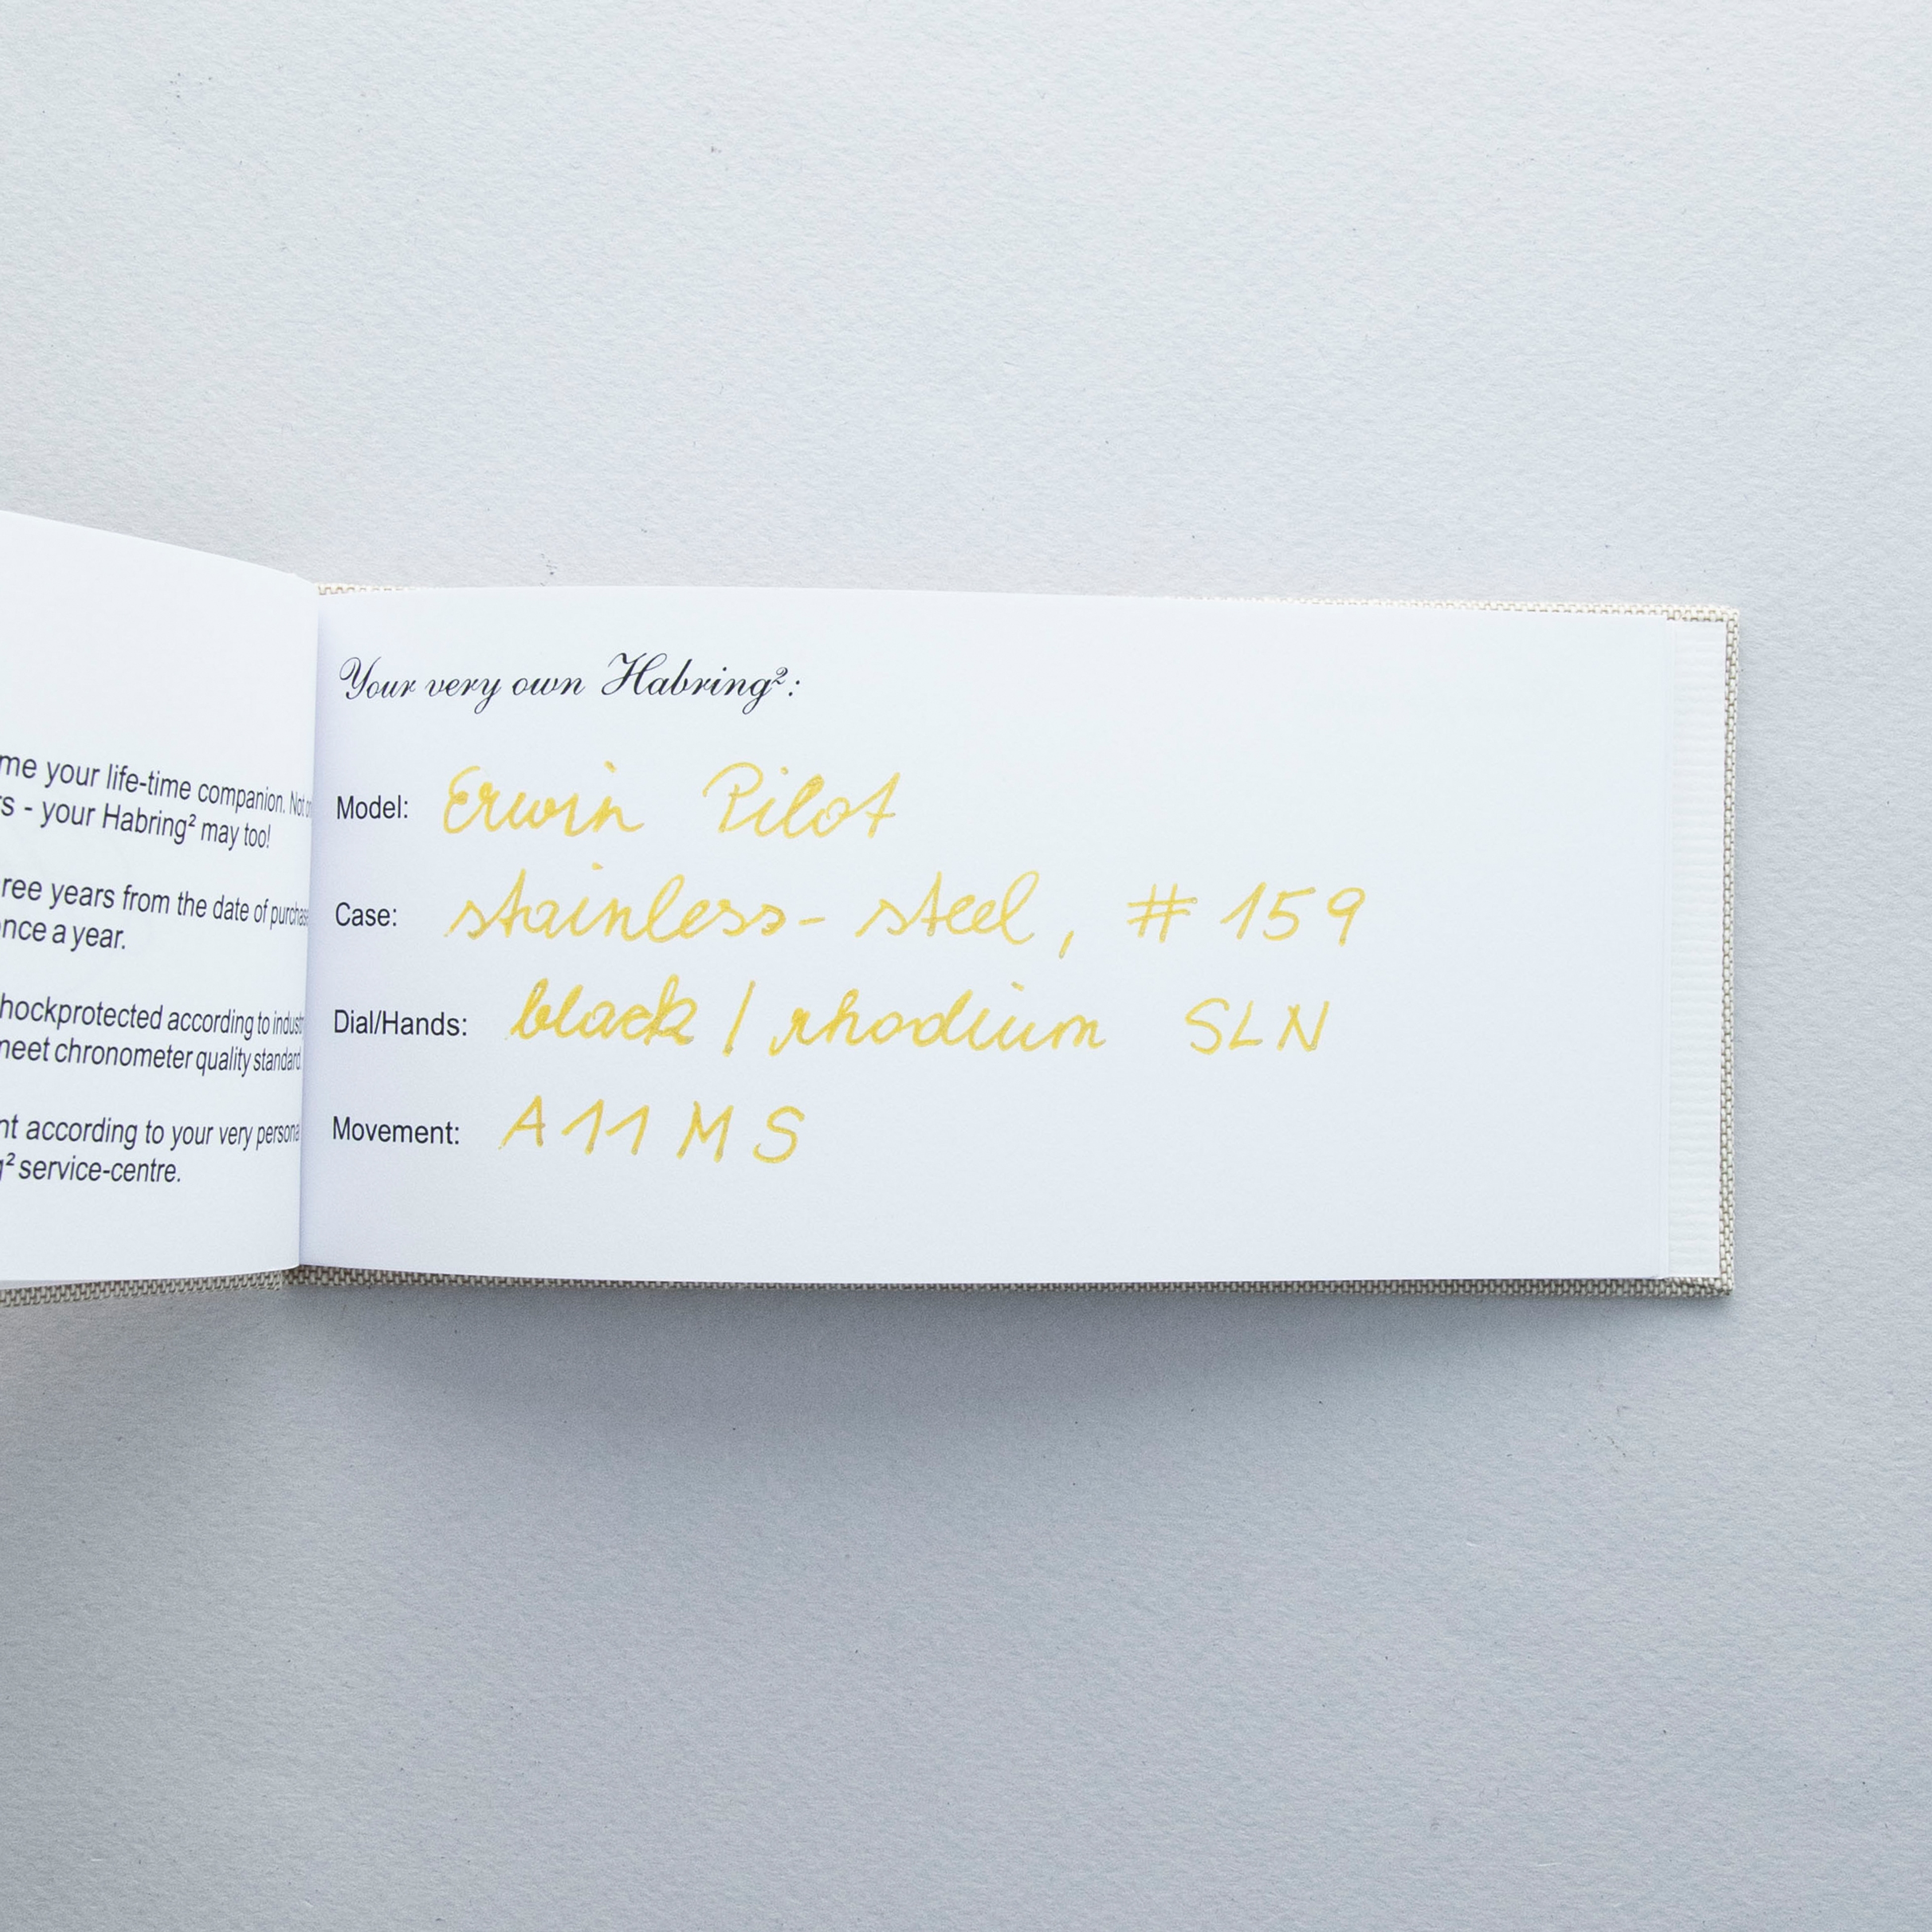 me your life-time companion. Not
s - your Habring² may too!
ree years from the date of purchase
nce a year.
hockprotected according to indust
meet chronometer quality standard.
nt according to your very personal
g² service-centre.
Your very own Habring²:
Model: Erwin Pilot
Case: stainless-steel, #159
Dial/Hands: black / rhodium SLN
Movement: A11MS